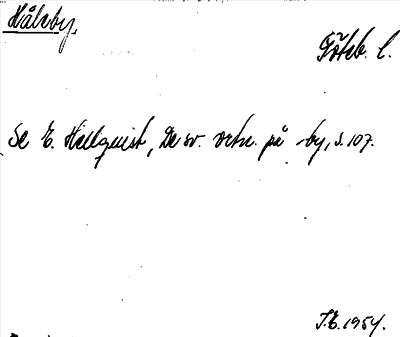 Håleby.
Göteb. l.
Se E. Hellquist, De sv. ortn. på -by, s. 107.
J.E. 1954.